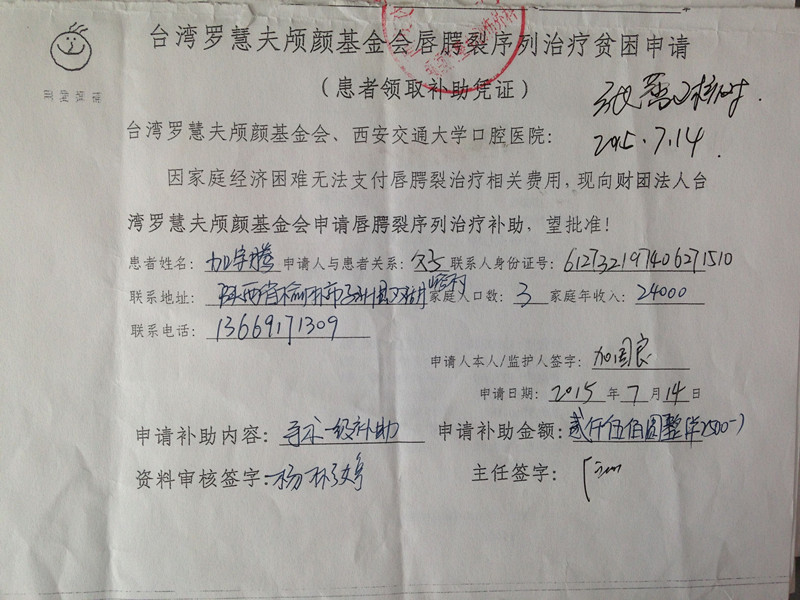 台湾罗慧夫颅颜基金会唇腭裂序列治疗贫困申请
（患者领取补助凭证）
2015.7.14.
台湾罗慧夫颅颜基金会、西安交通大学口腔医院：
因家庭经济困难无法支付唇腭裂治疗相关费用，现向财团法人台
湾罗慧夫颅颜基金会申请唇腭裂序列治疗补助，望批准！
患者姓名：加宇腾 申请人与患者关系：父子 联系人身份证号：612732197406271510
联系地址：陕西省榆林市子洲县 家庭人口数：3 家庭年收入：24000
联系电话：13669171309
申请人本人/监护人签字：加国良
申请日期：2015 年 7 月 14 日
申请补助内容：手术一级补助 申请补助金额：贰仟伍佰圆整
资料审核签字：杨 主任签字：